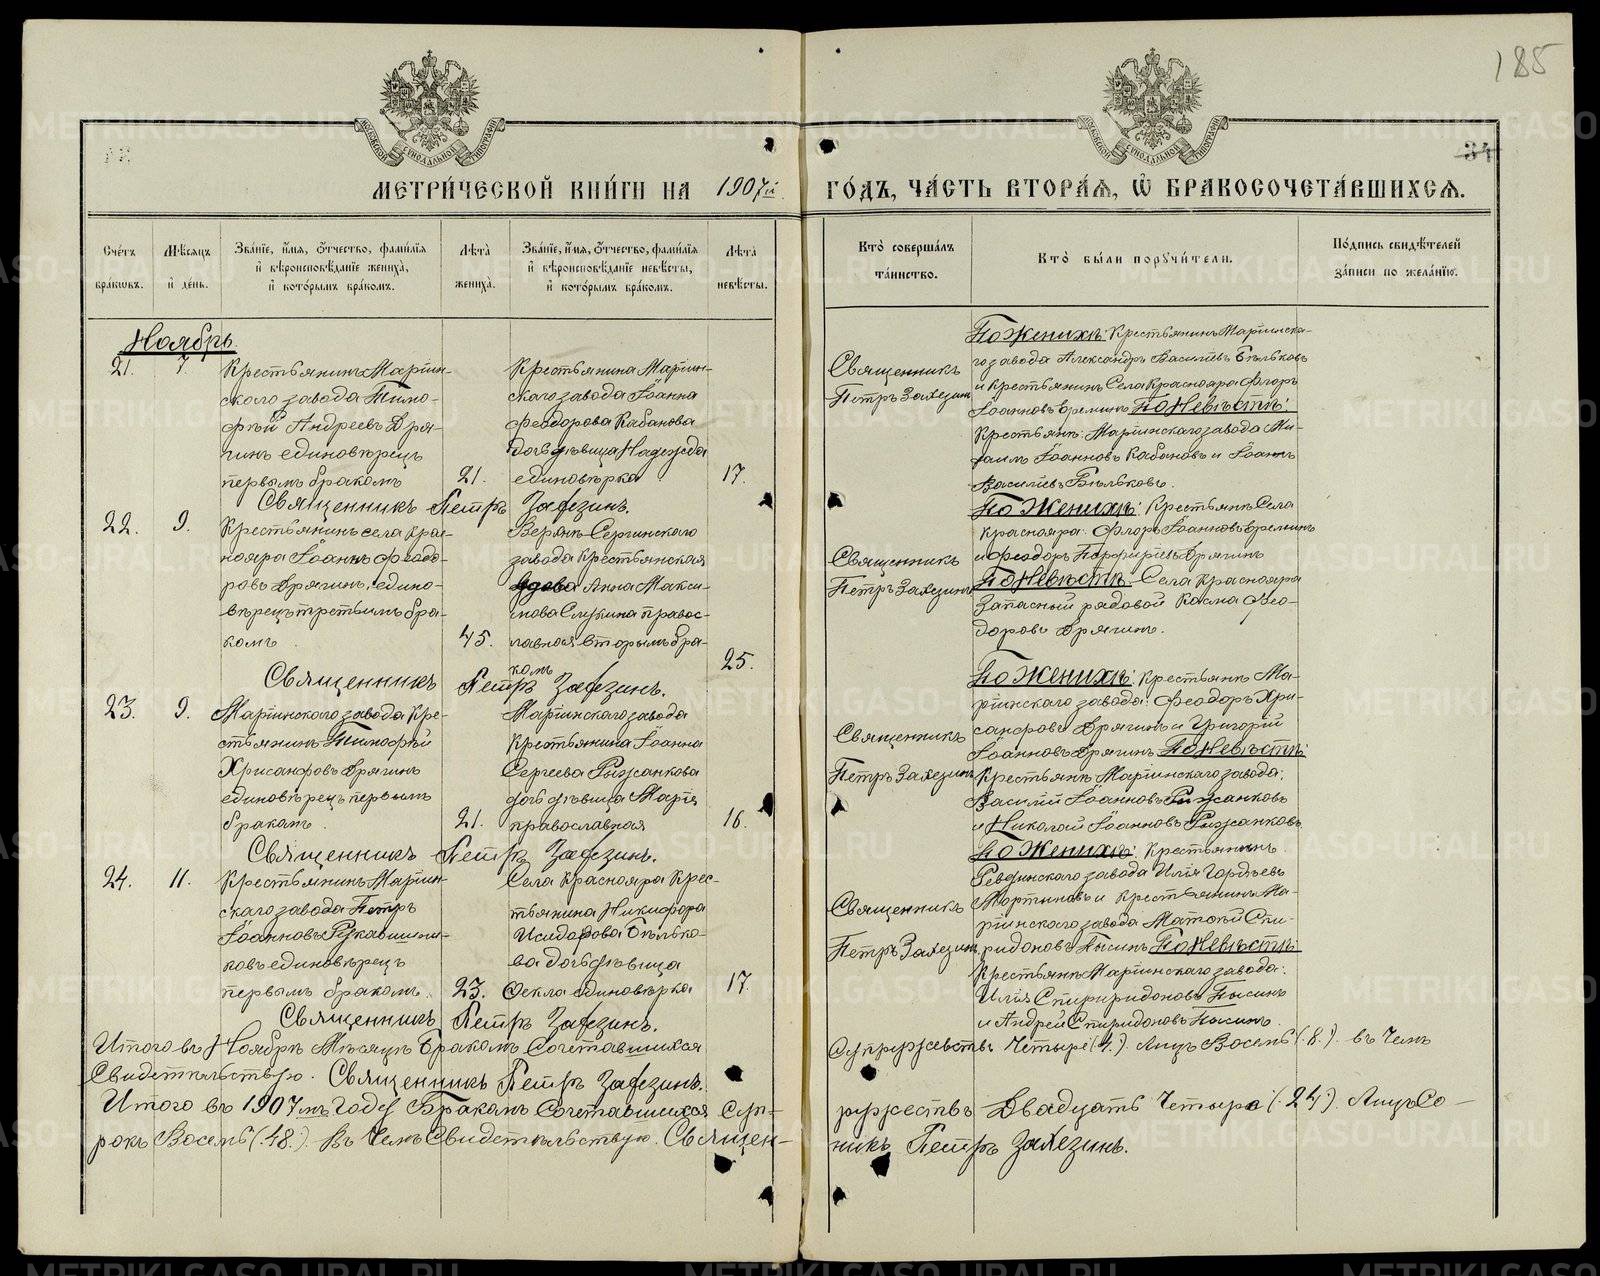 185
34
МЕТРИ́ЧЕСКОЙ КНИ́ГИ НА 1907й ГО́ДЪ, ЧА́СТЬ ВТОРА́Ѧ, Ѡ҆ БРАКОСОЧЕТА́ВШИХСѦ.
Сче́тъ бра́кѡвъ.
Мѣ́сяцъ и҆ де́нь.
Зва́нїе, и҆́мя, ѻ҆́тчество, фами́лїя и҆ вѣроисповѣ́данїе жениха̀, и҆ кото́рымъ бра́комъ.
Лѣта̀ жениха̀.
Зва́нїе, и҆́мя, ѻ҆́тчество, фами́лїя и҆ вѣроисповѣ́данїе невѣ́сты, и҆ кото́рымъ бра́комъ.
Лѣта̀ невѣ́сты.
Кто̀ соверша́лъ та́инство.
Кто̀ бы́ли порꙋчи́тели.
По́дпись свидѣ́телей за́писи по жела́нїю.
Ноябрь
21.
7.
Крестьянинъ Маріин-
скаго завода Тимо-
фѣй Андреевъ Дря-
гинъ единовѣрецъ
первымъ бракомъ
21.
Крестьянина Маріин-
скаго завода Іоанна
Феодорова Кабанова
дочь дѣвица Надежда
единовѣрка
17.
Священникъ
Петръ Залезинъ
По Женихѣ: Крестьянинъ Маріинска-
го завода Александръ Васильевъ Бѣльковъ
и крестьянинъ Села Краснояра Флоръ
Іоанновъ Ереминъ По Невѣстѣ:
Крестьянѣ: Маріинскаго завода Ми-
хаилъ Іоанновъ Кабановъ и Іоаннъ
Васильевъ Бѣльковъ.
Священникъ Петръ Залезинъ.
22.
9.
Крестьянинъ села Крас-
нояра Іоаннъ Феодо-
ровъ Дрягинъ, едино-
вѣрецъ третьимъ бра-
комъ
45.
Верхнъ Сергинскаго
завода Крестьянская
вдова Анна Макси-
мова Слукина правос-
лавная вторымъ бра-
комъ
25.
Священникъ
Петръ Залезинъ
По Женихѣ: Крестьянѣ Села
Краснояра: Флоръ Іоанновъ Ереминъ
и Феодоръ Порфирьевъ Дрягинъ
По Невѣстѣ: Села Краснояра
Запасный рядовой Косма Фео-
доровъ Дрягинъ.
Священникъ Петръ Залезинъ.
23.
9.
Маріинскаго завода Кре-
стьянинъ Тимофѣй
Хрисанфовъ Дрягинъ
единовѣрецъ первымъ
бракомъ.
21.
Маріинскаго завода
Крестьянина Іоанна
Сергеева Рижанкова
дочь дѣвица Марія
православная
16.
Священникъ
Петръ Залезинъ
По Женихѣ: Крестьянѣ Ма-
ріинскаго завода: Феодоръ Хри-
санфовъ Дрягинъ и Григорій
Іоанновъ Дрягинъ По Невѣстѣ:
Крестьянѣ Маріинскаго завода:
Василій Іоанновъ Рижанковъ
и Николай Іоанновъ Рижанковъ
Священникъ Петръ Залезинъ.
24.
11.
Крестьянинъ Маріин-
скаго завода Петръ
Іоанновъ Рукавишни-
ковъ единовѣрецъ
первымъ бракомъ.
23.
Села Краснояра Крес-
тьянина Никифора
Исидорова Бѣлько-
ва дочь дѣвица
Фекла единовѣрка
17.
Священникъ
Петръ Залезинъ
По Женихѣ: Крестьянинъ
Ревдинскаго завода Илія Гордѣевъ
Мартыновъ и крестьянинъ Ма-
ріинскаго завода Матѳѣй Спи-
ридоновъ Пысинъ По Невѣстѣ:
Крестьянѣ Маріинскаго завода:
Илія Спириридоновъ Пысинъ
и Андрей Спиридоновъ Пысинъ
Священникъ Петръ Залезинъ.
Итого въ Ноябрѣ Мѣсяцѣ Бракомъ Сочетавшихся Супружествъ Четыре (4.). Лицъ Восемь (.8.). въ Чемъ
Свидетельствую. Священникъ Петръ Залезинъ.
Итого въ 1907мъ Году Бракомъ Сочетавшихся Суп-ружествъ Двадцать Четыре (.24.). Лицъ Со-
рокъ Восемь (.48.). Въ Чемъ Свидетельствую. Священ-никъ Петръ Залезинъ.
METRIKI.GASO-URAL.RU